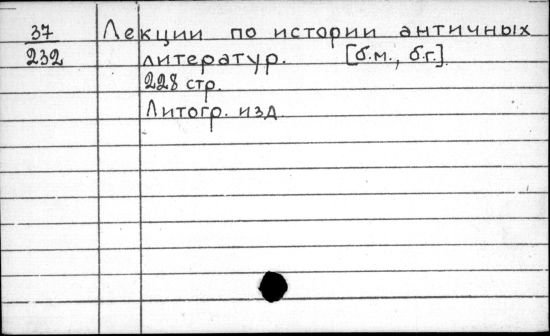 37 Лекции по истории античных
232 литератур. [б.м., б.г.]
228 стр.
Литогр. изд.